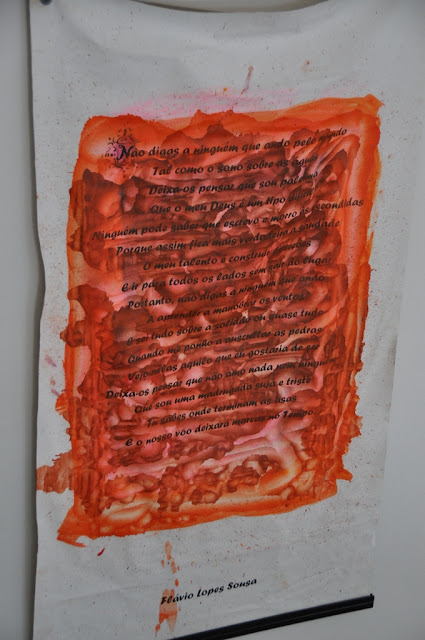 Não digas a ninguém que ando pelo mundo
Tal como o sono sobre as águas
Deixa-os pensar que sou
Que o meu Deus é um tipo
Ninguém pode saber que escrevo e morro às escondidas
Porque assim fica mais verdadeira a saudade
O meu talento é construir
E ir para todos os lados sem sair do lugar
Portanto, não digas a ninguém que ando
A aprender a manobrar os ventos
E sei tudo sobre a solidão ou quase tudo
Quando me ponho a auscultar as pedras
Vejo nelas aquilo que eu gostaria de ser
Deixa-os pensar que não amo nada nem ninguém
Que sou uma madrugada suja e triste
Tu sabes onde terminam as asas
E o nosso voo deixará marcas no Tempo.
Flávio Lopes Sousa